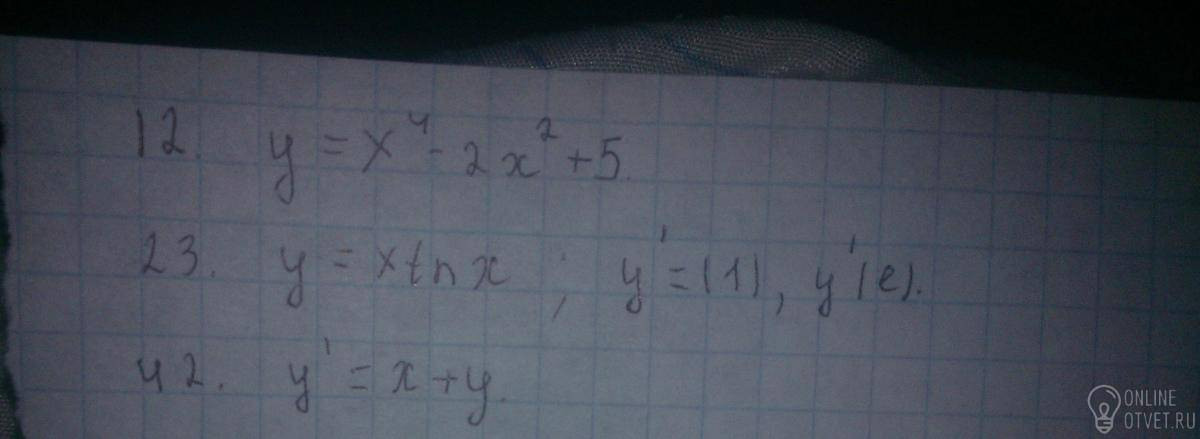 12. y = x⁴ - 2x² + 5.
23. y = xtnx ; y' = (1), y'(e).
42. y' = x + y.
ONLINE
OTVET.RU